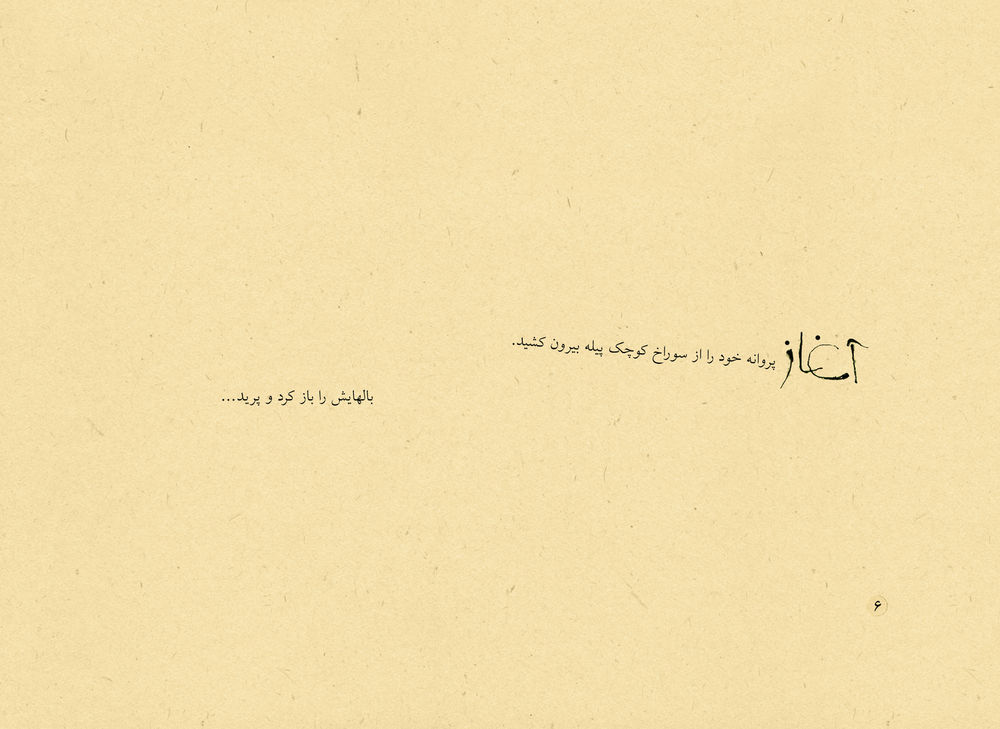 آغاز
پروانه خود را از سوراخ کوچک پیله بیرون کشید.
بالهایش را باز کرد و پرید...
۶